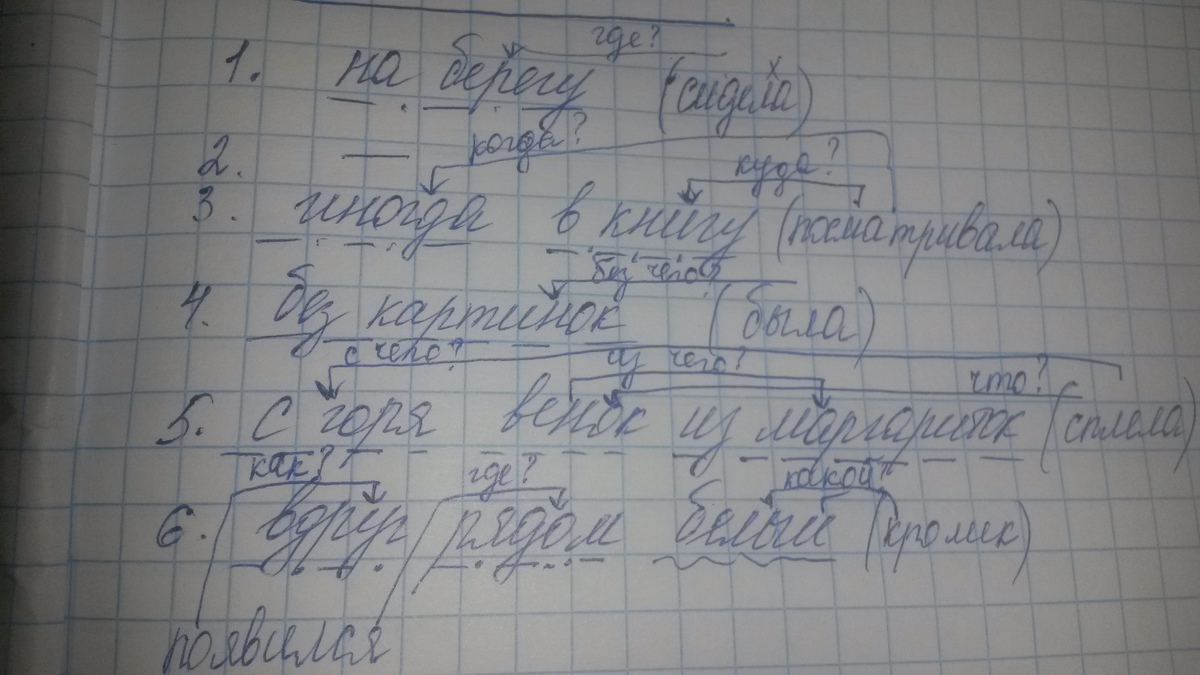 где?
1. на берегу (сидела)
когда?
2. —
куда?
3. иногда в книгу (посматривала)
без чего?
4. без картинок (была)
с чего? из чего? что?
5. с горя венок из маргариток (сплела)
как? где? какой?
6. вдруг рядом белый (кролик)
появился